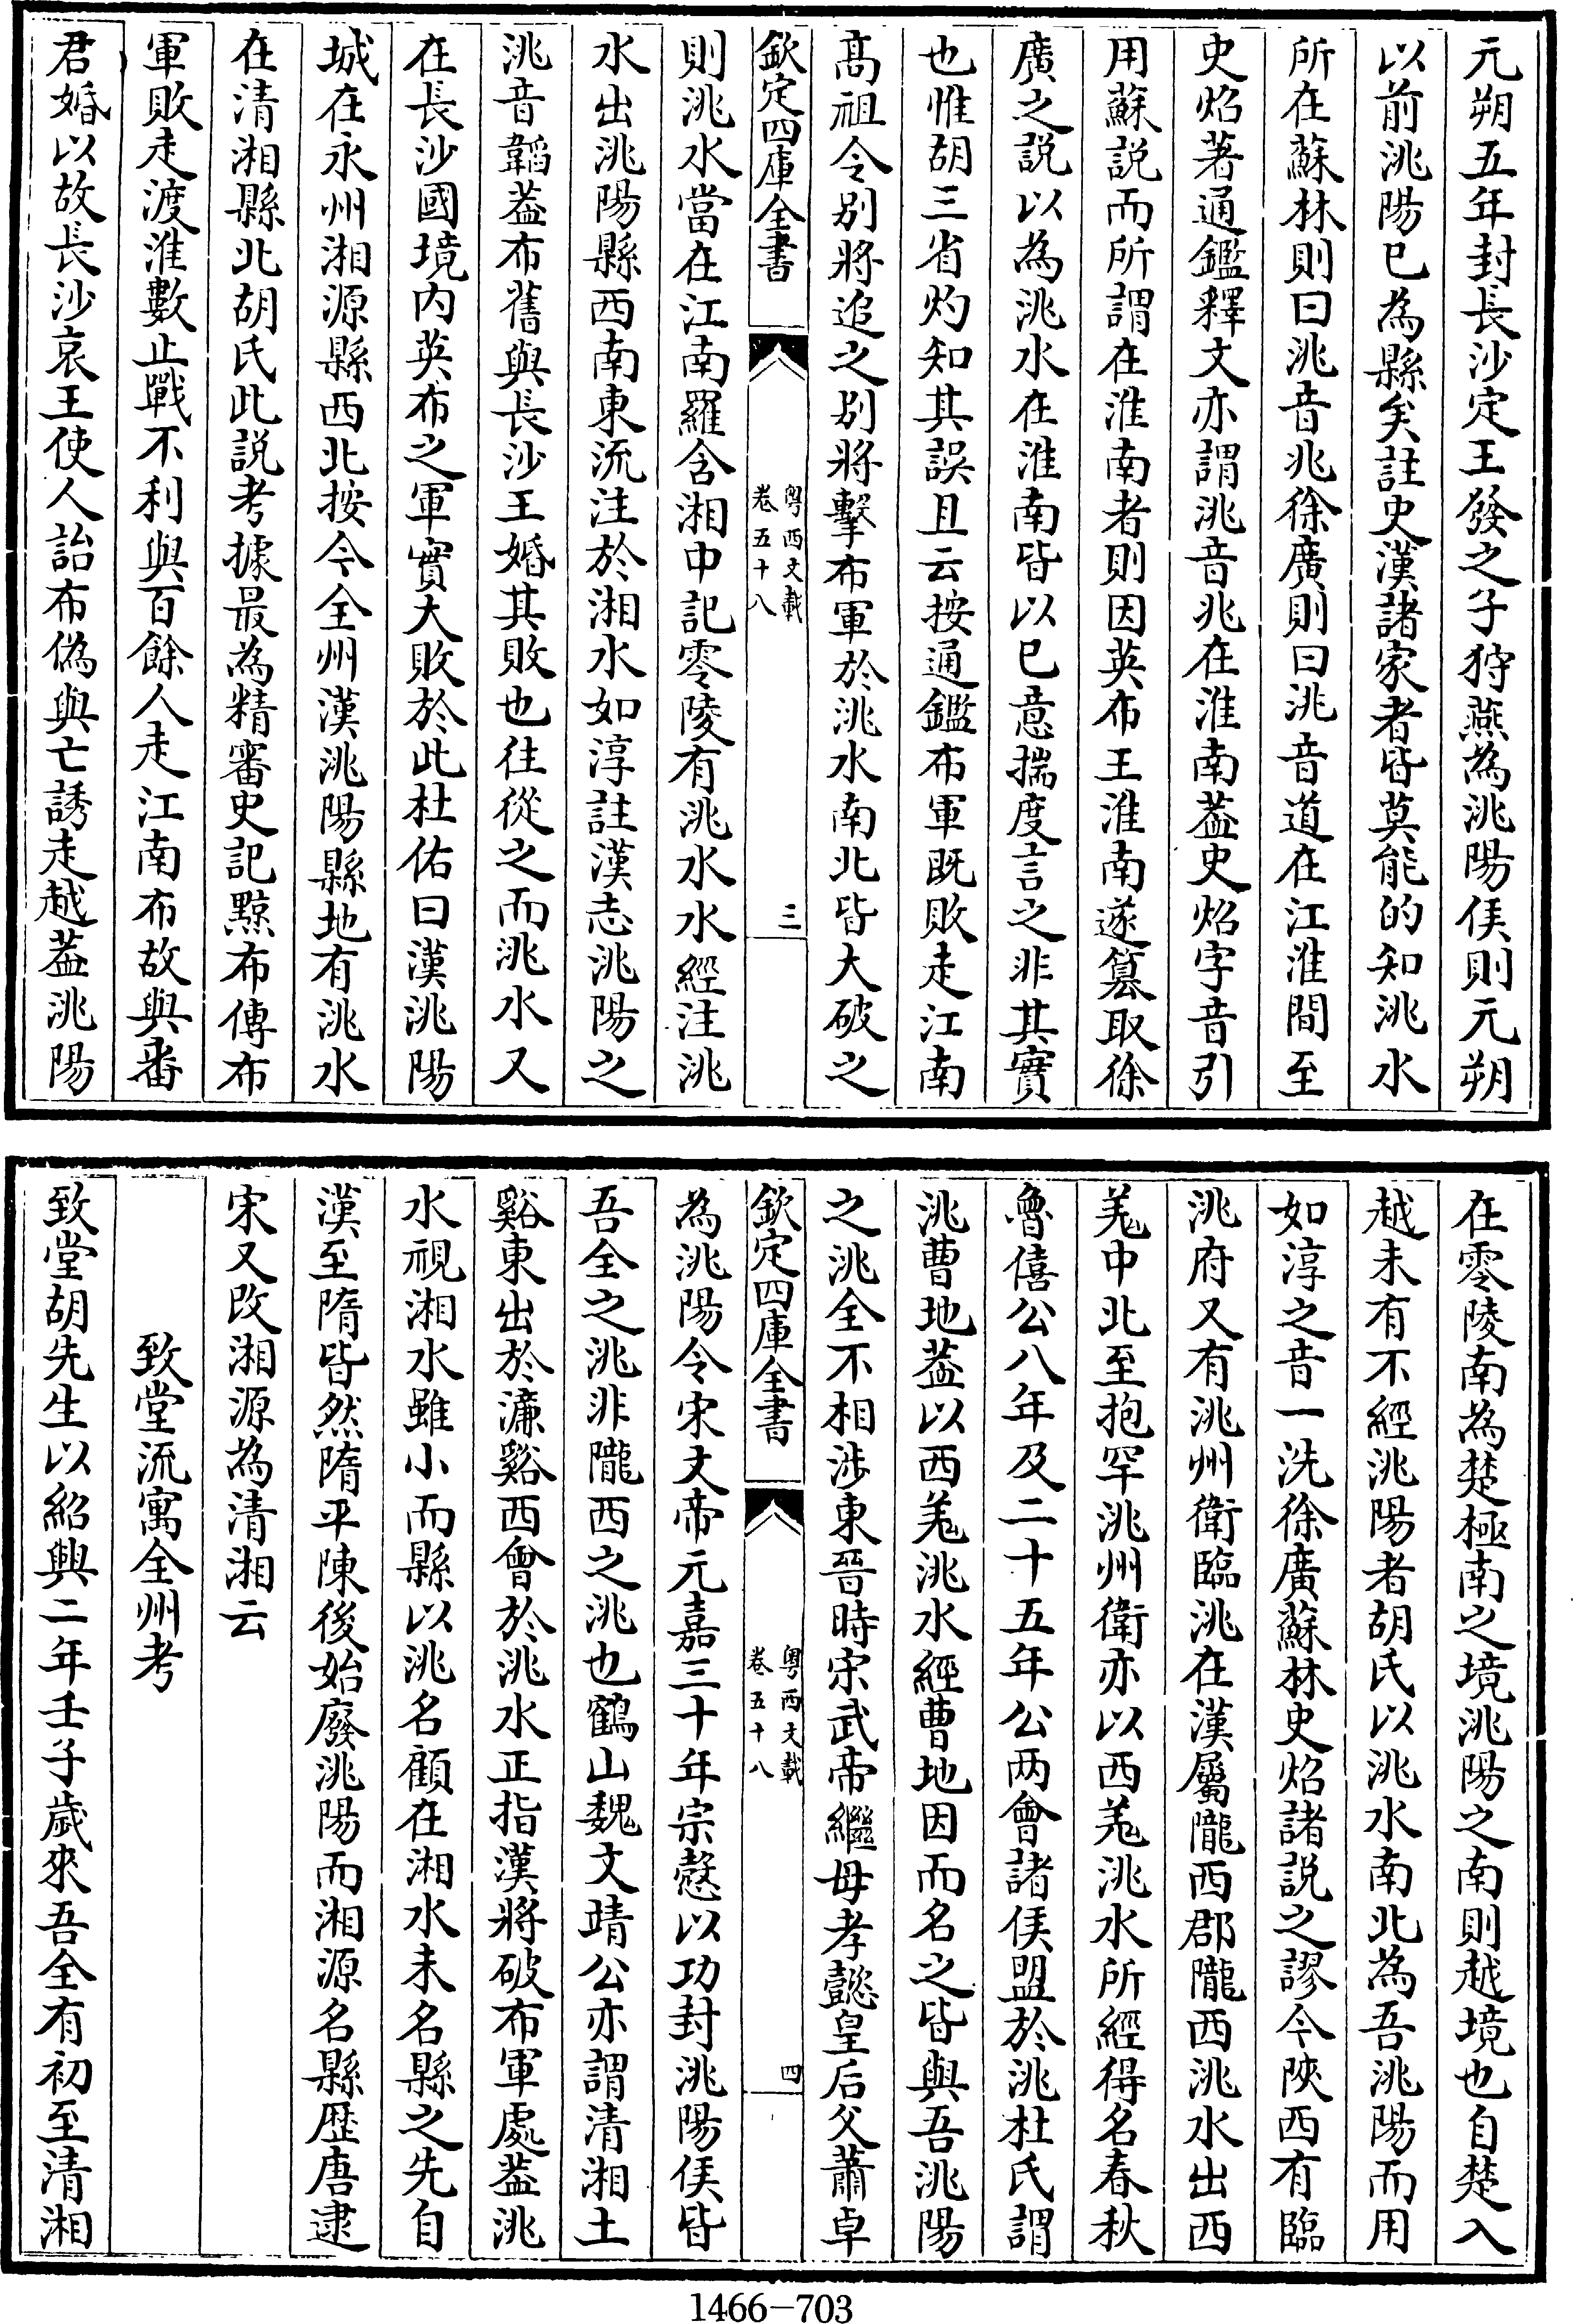 元朔五年封長沙定王發之子狩燕為洮陽侯則元朔
以前洮陽已為縣矣註史漢諸家者皆莫能的知洮水
所在蘇林則曰洮音兆徐廣則曰洮音道在江淮間至
史炤著通鑑釋文亦謂洮音兆在淮南葢史炤字音引
用蘇説而所謂在淮南者則因英布王淮南遂篡取徐
廣之説以為洮水在淮南皆以已意揣度言之非其實
也惟胡三省灼知其誤且云按通鑑布軍既敗走江南
髙祖令别將追之别將擊布軍於洮水南北皆大破之
欽定四庫全書
粤西文載
卷五十八
三
則洮水當在江南羅含湘中記零陵有洮水水經注洮
水出洮陽縣西南東流注於湘水如淳註漢志洮陽之
洮音韜葢布舊與長沙王婚其敗也往從之而洮水又
在長沙國境内英布之軍實大敗於此杜佑曰漢洮陽
城在永州湘源縣西北按今全州漢洮陽縣地有洮水
在清湘縣北胡氏此説考據最為精審史記黥布傳布
軍敗走渡淮數止戰不利與百餘人走江南布故與番
君婚以故長沙哀王使人詒布偽與亡誘走越葢洮陽
在零陵南為楚極南之境洮陽之南則越境也自楚入
越未有不經洮陽者胡氏以洮水南北為吾洮陽而用
如淳之音一洗徐廣蘇林史炤諸説之謬今陜西有臨
洮府又有洮州衛臨洮在漢屬隴西郡隴西洮水出西
羌中北至抱罕洮州衛亦以西羌洮水所經得名春秋
魯僖公八年及二十五年公两㑹諸侯盟於洮杜氏謂
洮曹地葢以西羌洮水經曹地因而名之皆與吾洮陽
之洮全不相涉東晉時宋武帝繼母孝懿皇后父蕭卓
欽定四庫全書
粤西文載
卷五十八
四
為洮陽令宋文帝元嘉三十年宗慤以功封洮陽侯皆
吾全之洮非隴西之洮也鶴山魏文靖公亦謂清湘土
谿東出於濓谿西會於洮水正指漢將破布軍處葢洮
水視湘水雖小而縣以洮名顧在湘水未名縣之先自
漢至隋皆然隋平陳後始廢洮陽而湘源名縣歴唐逮
宋又改湘源為清湘云
致堂流寓全州考
致堂胡先生以紹興二年壬子歲來吾全有初至清湘
1466-703